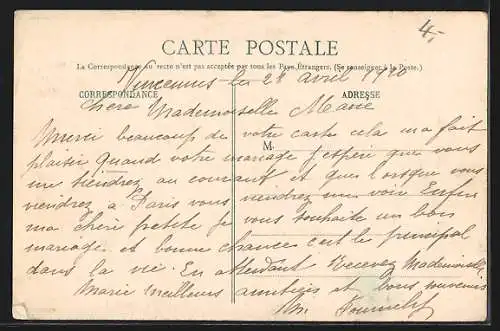 4.-
CARTE POSTALE
La Correspondance au recto n'est pas acceptée par tous les Pays Étrangers. (Se renseigner à la Poste.)
Vincennes le 28 avril 1910
CORRESPONDANCE ADRESSE
Chère Mademoiselle Marie
M
Merci beaucoup de votre carte cela ma fait
plaisir Quand votre mariage j'espère que vous
me tiendrez au courant et que lorsque vous
viendrez à Paris vous viendrez me voir Enfin
ma chère petite je vous souhaite un bon
mariage et bonne chance c'est le principal
dans la vie. En attendant Recevez Mademoiselle
Marie meilleurs amitiées et bons souvenirs